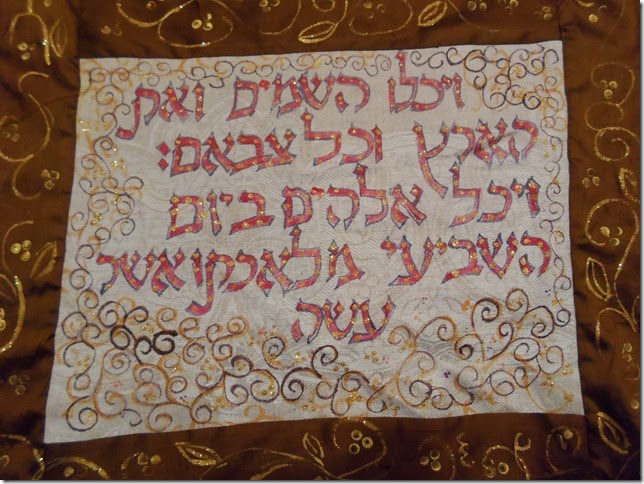 ויכלו השמים ואת
הארץ וכל צבאם:
ויכל אלהים ביום
השביעי מלאכתו אשר
עשה